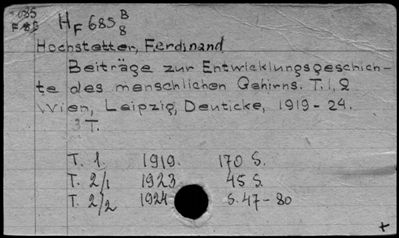 685
HF 685 B/8
Hochstetter, Ferdinand
Beiträge zur Entwicklungsgeschich-
te des menschlichen Gehirns. T. 1, 2
Wien, Leipzig, Deuticke, 1919-24.
3 T.
T. 1. 1919. 170 S.
T. 2/1 1923 45 S.
T. 2/2 1924 S. 47-80
+